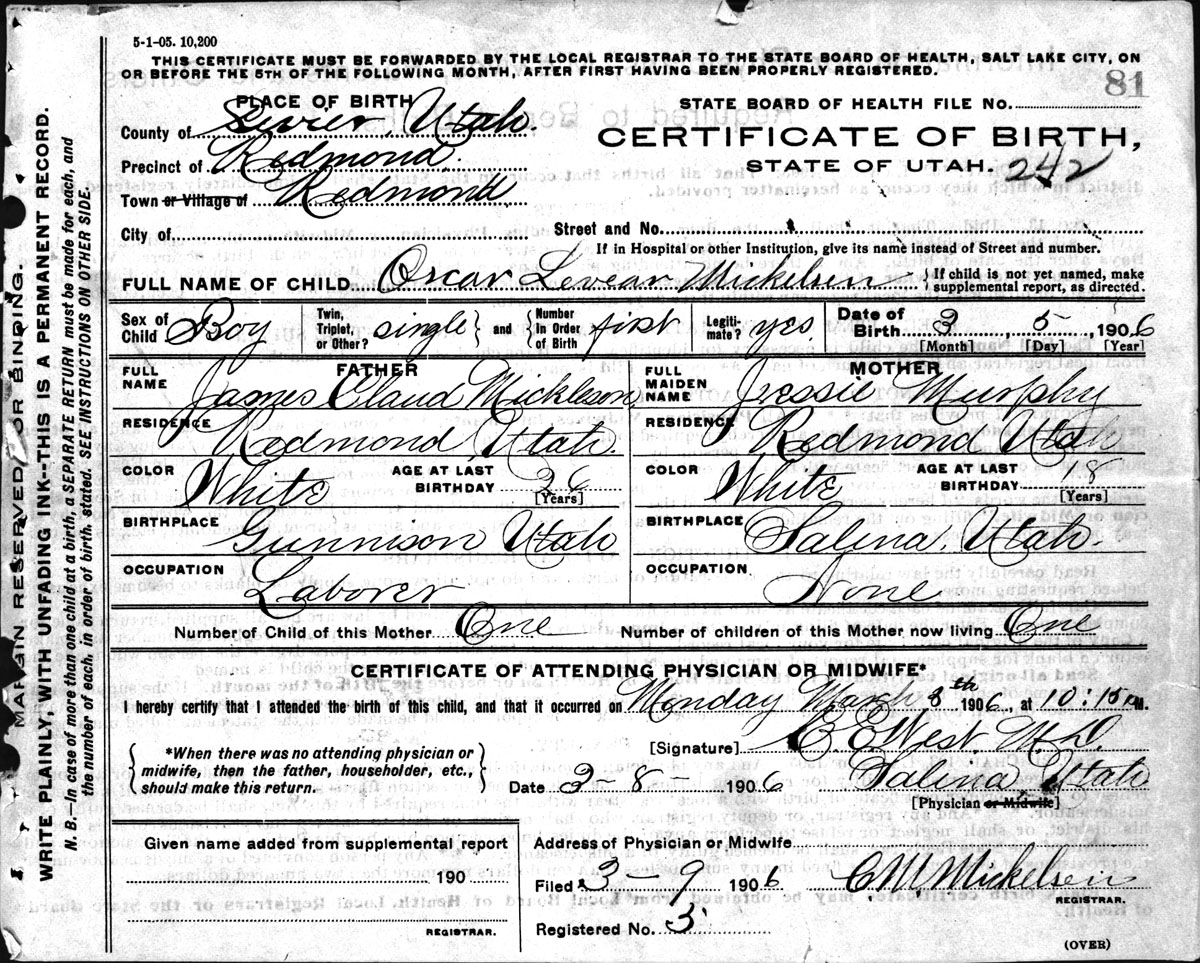 5-1-05. 10,200
THIS CERTIFICATE MUST BE FORWARDED BY THE LOCAL REGISTRAR TO THE STATE BOARD OF HEALTH, SALT LAKE CITY, ON
OR BEFORE THE 5TH OF THE FOLLOWING MONTH, AFTER FIRST HAVING BEEN PROPERLY REGISTERED.
81
MARGIN RESERVED FOR BINDING.
WRITE PLAINLY, WITH UNFADING INK--THIS IS A PERMANENT RECORD.
N. B.—In case of more than one child at a birth, a SEPARATE RETURN must be made for each, and
the number of each, in order of birth, stated. SEE INSTRUCTIONS ON OTHER SIDE.
PLACE OF BIRTH
County of Sevier, Utah.
Precinct of Redmond.
Town or Village of Redmond,
City of
STATE BOARD OF HEALTH FILE NO.
CERTIFICATE OF BIRTH,
STATE OF UTAH. 242
Street and No.
If in Hospital or other Institution, give its name instead of Street and number.
FULL NAME OF CHILD Oscar Levear Mickelsen { If child is not yet named, make
supplemental report, as directed.
Sex of Child Boy Twin, Triplet, or Other? single } and { Number In Order of Birth first Legitimate? yes Date of Birth 3 5 1906
[Month] [Day] [Year]
FATHER
FULL NAME James Claud Mickleson
RESIDENCE Redmond, Utah.
COLOR White AGE AT LAST BIRTHDAY 26
[Years]
BIRTHPLACE Gunnison Utah
OCCUPATION Laborer
MOTHER
FULL MAIDEN NAME Jessie Murphy
RESIDENCE Redmond Utah
COLOR White AGE AT LAST BIRTHDAY 18
[Years]
BIRTHPLACE Salina, Utah.
OCCUPATION None
Number of Child of this Mother One Number of children of this Mother now living One
CERTIFICATE OF ATTENDING PHYSICIAN OR MIDWIFE*
I hereby certify that I attended the birth of this child, and that it occurred on Monday March 5th 1906, at 10:15 M.
{ *When there was no attending physician or
midwife, then the father, householder, etc.,
should make this return. }
[Signature] C. E. West. M.D.
Date 3-8- 1906 Salina Utah
[Physician or Midwife]
Given name added from supplemental report
190
REGISTRAR.
Address of Physician or Midwife
Filed 3-9 1906 C W. Mickelsen
REGISTRAR.
Registered No. 3
(OVER)